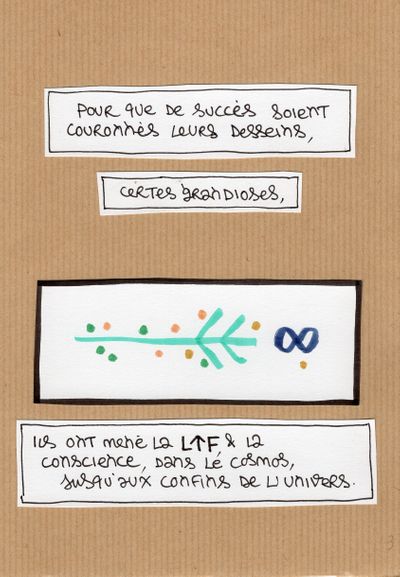 POUR QUE DE SUCCÈS SOIENT
COURONNÉS LEURS DESSEINS,
CERTES GRANDIOSES,
ILS ONT MENÉ LA L↑F, & LA
CONSCIENCE, DANS LE COSMOS,
JUSQU'AUX CONFINS DE L'UNIVERS.
3